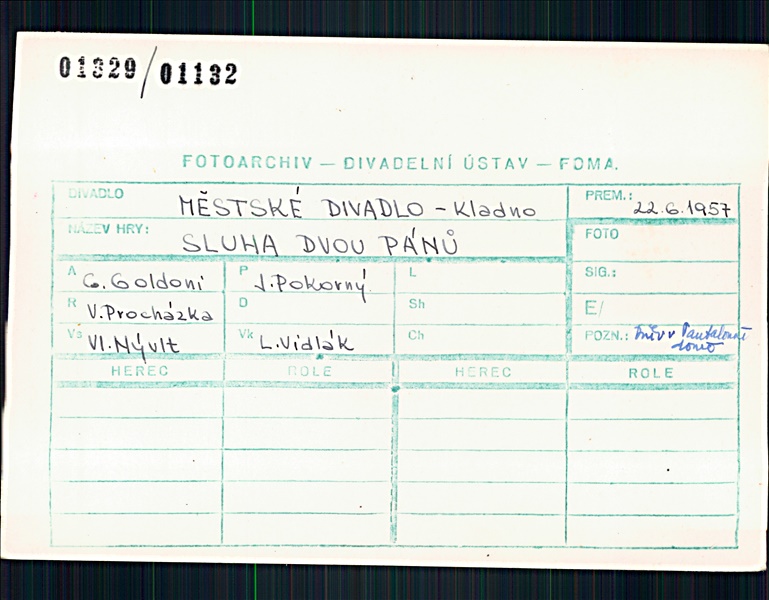 01329/01132
FOTOARCHIV — DIVADELNÍ ÚSTAV — FOMA.
DIVADLO MĚSTSKÉ DIVADLO - Kladno PREM.: 22.6.1957
NÁZEV HRY: SLUHA DVOU PÁNŮ FOTO
A G. Goldoni P J. Pokorný L SIG.:
R V. Procházka D Sh E/
Vs Vl. Nývlt Vk L. Vidlák Ch POZN.: v
HEREC ROLE HEREC ROLE